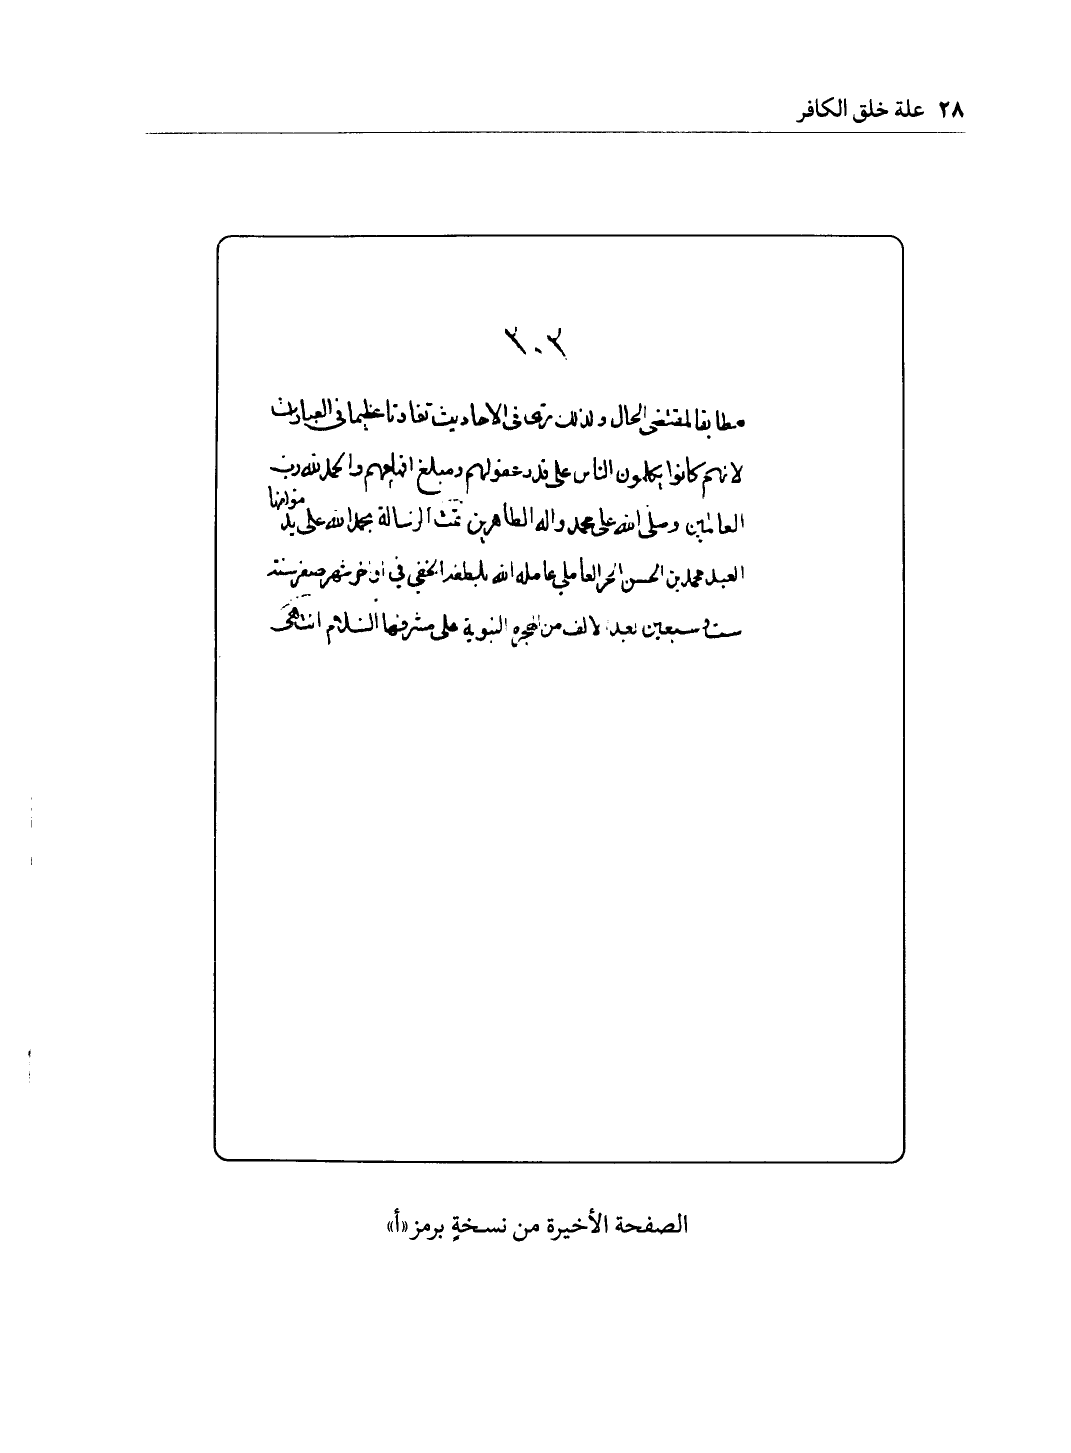 ٢٨ علة خلق الكافر
٣٠٢
مطابقا لمقتضى الحال ولذلك ترى فى الاحاديث تفاوتا عظيما فى العبارات
لانهم كانوا يكلمون الناس على قدر عقولهم ومبلغ افهامهم والحمد لله رب
العالمين وصلى الله على محمد واله الطاهرين تمت الرسالة بحمد الله على يد مؤلفها
العبد محمد بن الحسن الحر العاملي عامله الله بلطفه الخفي في اواخر شهر صفر سنة
ست وسبعين بعد الالف من الهجره النبوية على مشرفها السلام انتهى
الصفحة الأخيرة من نسخةٍ برمز «أ»